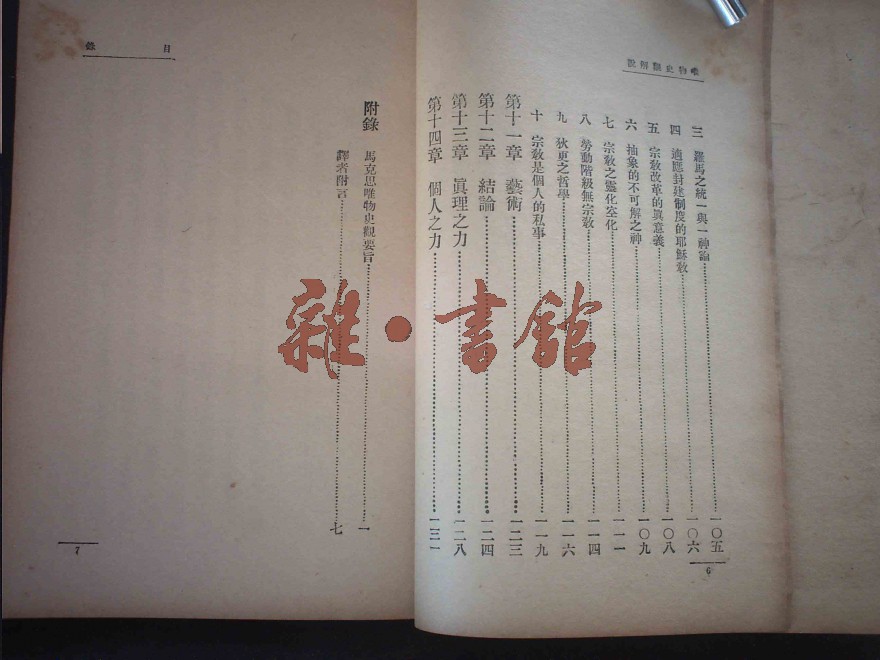 唯物史觀解說
三 羅馬之統一與一神論 一〇五
四 適應封建制度的耶穌敎 一〇六
五 宗敎改革的眞意義 一〇八
六 抽象的不可解之神 一〇九
七 宗敎之靈化空化 一一一
八 勞動階級無宗敎 一一四
九 狄更之哲學 一一六
十 宗敎是個人的私事 一一九
第十一章 藝術 一二三
第十二章 結論 一二四
第十三章 眞理之力 一二八
第十四章 個人之力 一三一
6
目錄
附錄
馬克思唯物史觀要旨 一
譯者附言 七
7
雜·書館